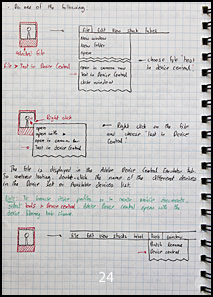 Do one of the following:
File Edit View Stack Labels
new window
new folder
open
selected file
File > Test in Device Central
open in camera raw
Test in Device Central
close window
choose File test
in device central
Right click
open
open with
open in camera raw
Test in Device Central
Right click on the file
and choose Test in Device
Central
The file is displayed in the Adobe Device Central Emulator tab.
To continue testing, double-click the name of the different devices
in the Device Set or Available devices list.
Note: To browse device profiles or to create mobile documents,
select Tools > Device Central. Adobe Device Central opens with the
device library tab
File Edit View stacks label Tools Window
Batch Rename
Device Central
24